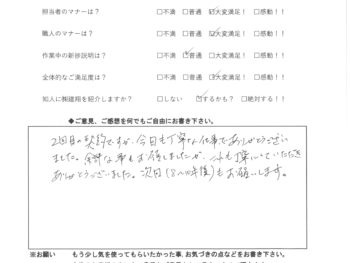 担当者のマナーは？ □不満 □普通 ☑大変満足！ □感動！！
職人のマナーは？ □不満 □普通 ☑大変満足！ □感動！！
作業中の進捗説明は？ □不満 ☑普通 □大変満足！ □感動！！
全体的なご満足度は？ □不満 □普通 ☑大変満足！ □感動！！
知人に㈱道翔を紹介しますか？ □しない ☑するかも？ □絶対する！！
◆ご意見、ご感想を何でもご自由にお書き下さい。
2回目の契約ですが、今回も丁寧な仕事でありがとうござい
ました。余計な事もお願しましたが、これも丁寧にしていただき
ありがとうございました。次回(8～10年後)もお願いします。
※お願い もう少し気を使ってもらいたかった事、お気づきの点などをお書き下さい。